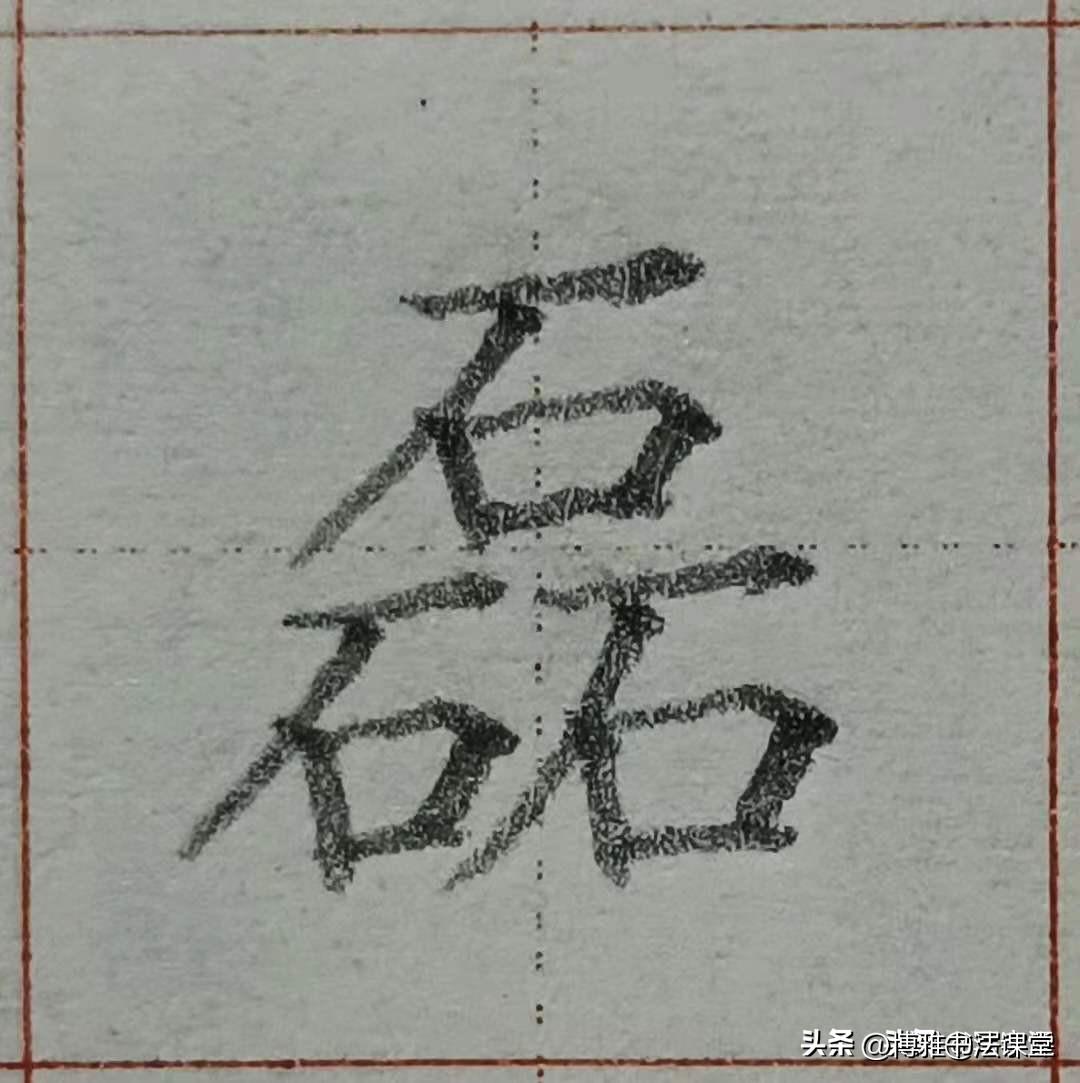 磊
头条 @博雅书法课堂